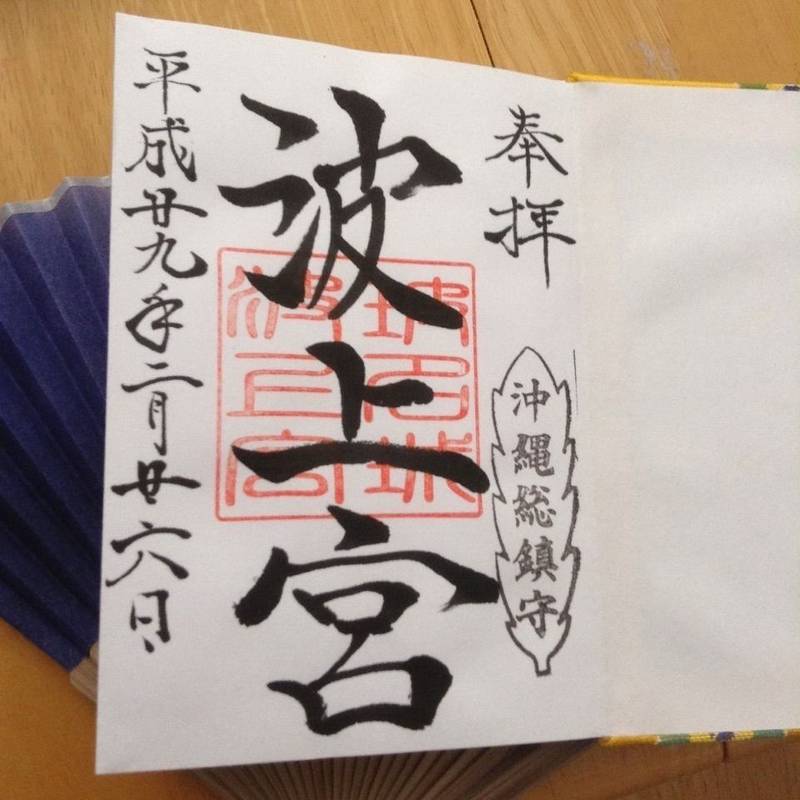 奉拝
沖縄総鎮守
波上宮
波上宮
平成廿九年二月廿六日